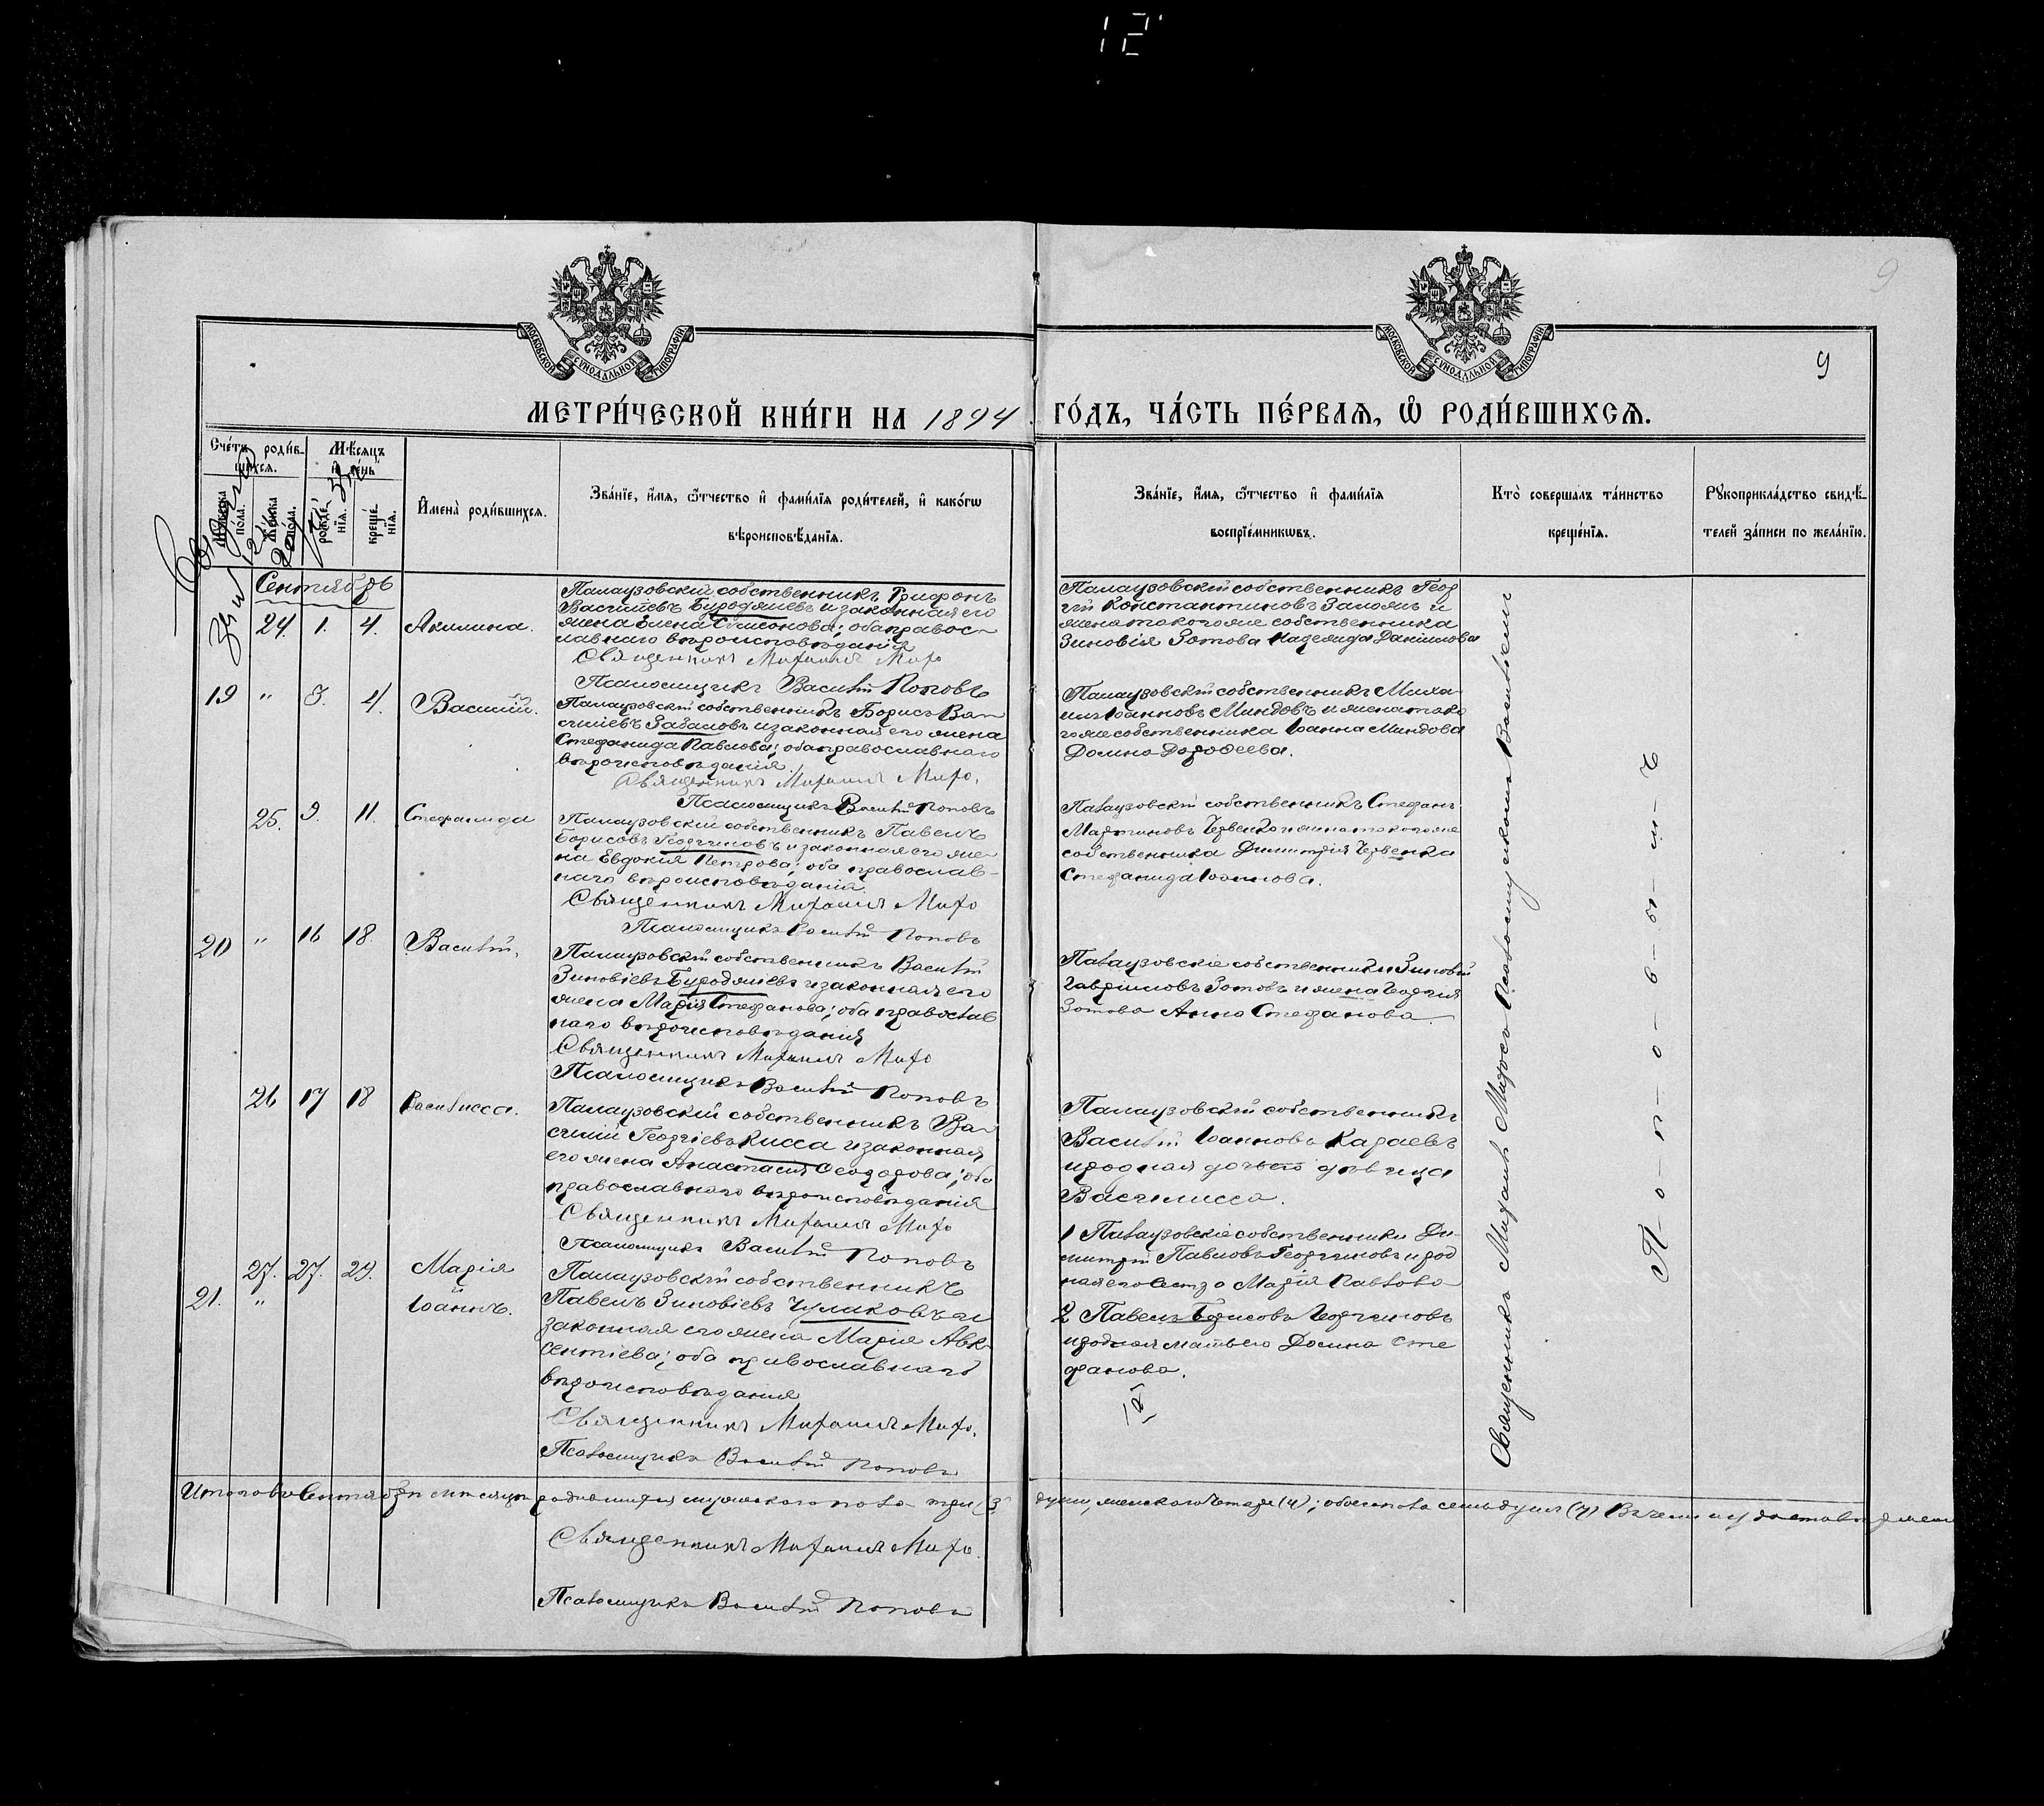 12
МОСКОВСКОЙ СѴНОДАЛЬНОЙ ТИПОГРАФІИ
МОСКОВСКОЙ СѴНОДАЛЬНОЙ ТИПОГРАФІИ
9
9
МЕТРИ́ЧЕСКОЙ КНИ́ГИ НА 1894 ГО́ДЪ, ЧА́СТЬ ПЕ́РВАЯ, Ѡ҆ РОДИ́ВШИХСЯ.
Сче́тъ роди́в-
шихся.
Мѣ́сяцъ
и҆ де́нь
Мꙋжеска
по́ла.
Же́нска
по́ла.
рожде́-
нїя.
креще́-
нїя.
И҆мена̀ роди́вшихся.
Зва́нїе, и҆́мя, ѻ҆́тчество и҆ фами́лїя роди́телей, и҆ како́гѡ
вѣроисповѣ́данїя.
Зва́нїе, и҆́мя, ѻ҆́тчество и҆ фами́лїя
воспрїе́мникѡвъ.
Кто̀ соверша́лъ та́инство
креще́нїя.
Рꙋкоприкла́дство свидѣ́-
телей за́писи по жела́нїю.
Сентябрь
24. 1. 4. Акилина.
Палаузовскій собственникъ Трифонъ
Василіевъ Бурдужіевъ и законная его
жена Елена Симеонова; оба правос-
лавнаго вѣроисповѣданія
Священникъ Михаилъ Миро
Псаломщикъ Василій Поповъ
Палаузовскій собственникъ Геор
гій Константиновъ и
жена такого же собственника
Зиновія Зотова Надежда Даніилова
19 " 3. 4. Василій.
Палаузовскій собственникъ Борисъ Ва-
силіевъ и законная его жена
Стефанида Павлова; оба православнаго
вѣроисповѣданія.
Священникъ Михаилъ Миро.
Псаломщикъ Василій Поповъ
Палаузовскій собственникъ Миха-
илъ Іоанновъ Миндовъ и жена тако
го же собственника Іоанна Миндова
Домна Дорофеева.
25. 9. 11. Стефанида
Палаузовскій собственникъ Павелъ
Борисовъ Георгиновъ и законная его же-
на Евдокія Петрова; оба православ-
наго вѣроисповѣданія.
Священникъ Михаилъ Миро
Псаломщикъ Василій Поповъ
Палаузовскій собственникъ Стефанъ
Мартиновъ Червенко и жена такого же
собственника Димитрія Червенка
Стефанида Іоаннова.
20 " 16 18. Василій.
Палаузовскій собственникъ Василій
Зиновіевъ и законная его
жена Марія Стефанова; оба православ
наго вѣроисповѣданія
Священникъ Михаилъ Миро
Псаломщикъ Василій Поповъ
Палаузовскіе собственники Зиновій
Гавриловъ Зотовъ и жена Георгія
Зотова Анна Стефанова.
26 17 18 Василисса.
Палаузовскій собственникъ Ва-
силій Георгіевъ Кисса и законная
его жена Анастасія Ѳеодорова; оба
православнаго вѣроисповѣданія
Священникъ Михаилъ Миро
Псаломщикъ Василій Поповъ
Палаузовскій собственникъ
Василій Іоанновъ Караевъ
и родная дочь его дѣвица
Василисса.
27. 27. 29. Марія
21. " Іоаннъ.
Палаузовскій собственникъ
Павелъ Зиновіевъ Чулаковъ и
законная его жена Марія Авк-
сентіева; оба православнаго
вѣроисповѣданія
Священникъ Михаилъ Миро.
Псаломщикъ Василій Поповъ
1 Палаузовскіе собственники Ди-
митрій Павловъ Георгиновъ и род
ная его сестра Марія Павлова
2 Павелъ Борисовъ Георгиновъ
и родная мать его Домна Сте
фанова.
Священникъ Михаилъ Миро съ Псаломщикомъ Василіемъ
П-о-п-о-в-ы-м-ъ
Итого въ Сентябрѣ мѣсяцѣ родившихся мужеского пола три (3) души, женскаго четыре (4); обоего пола семь душъ (7)
Священникъ Михаилъ Миро.
Псаломщикъ Василій Поповъ